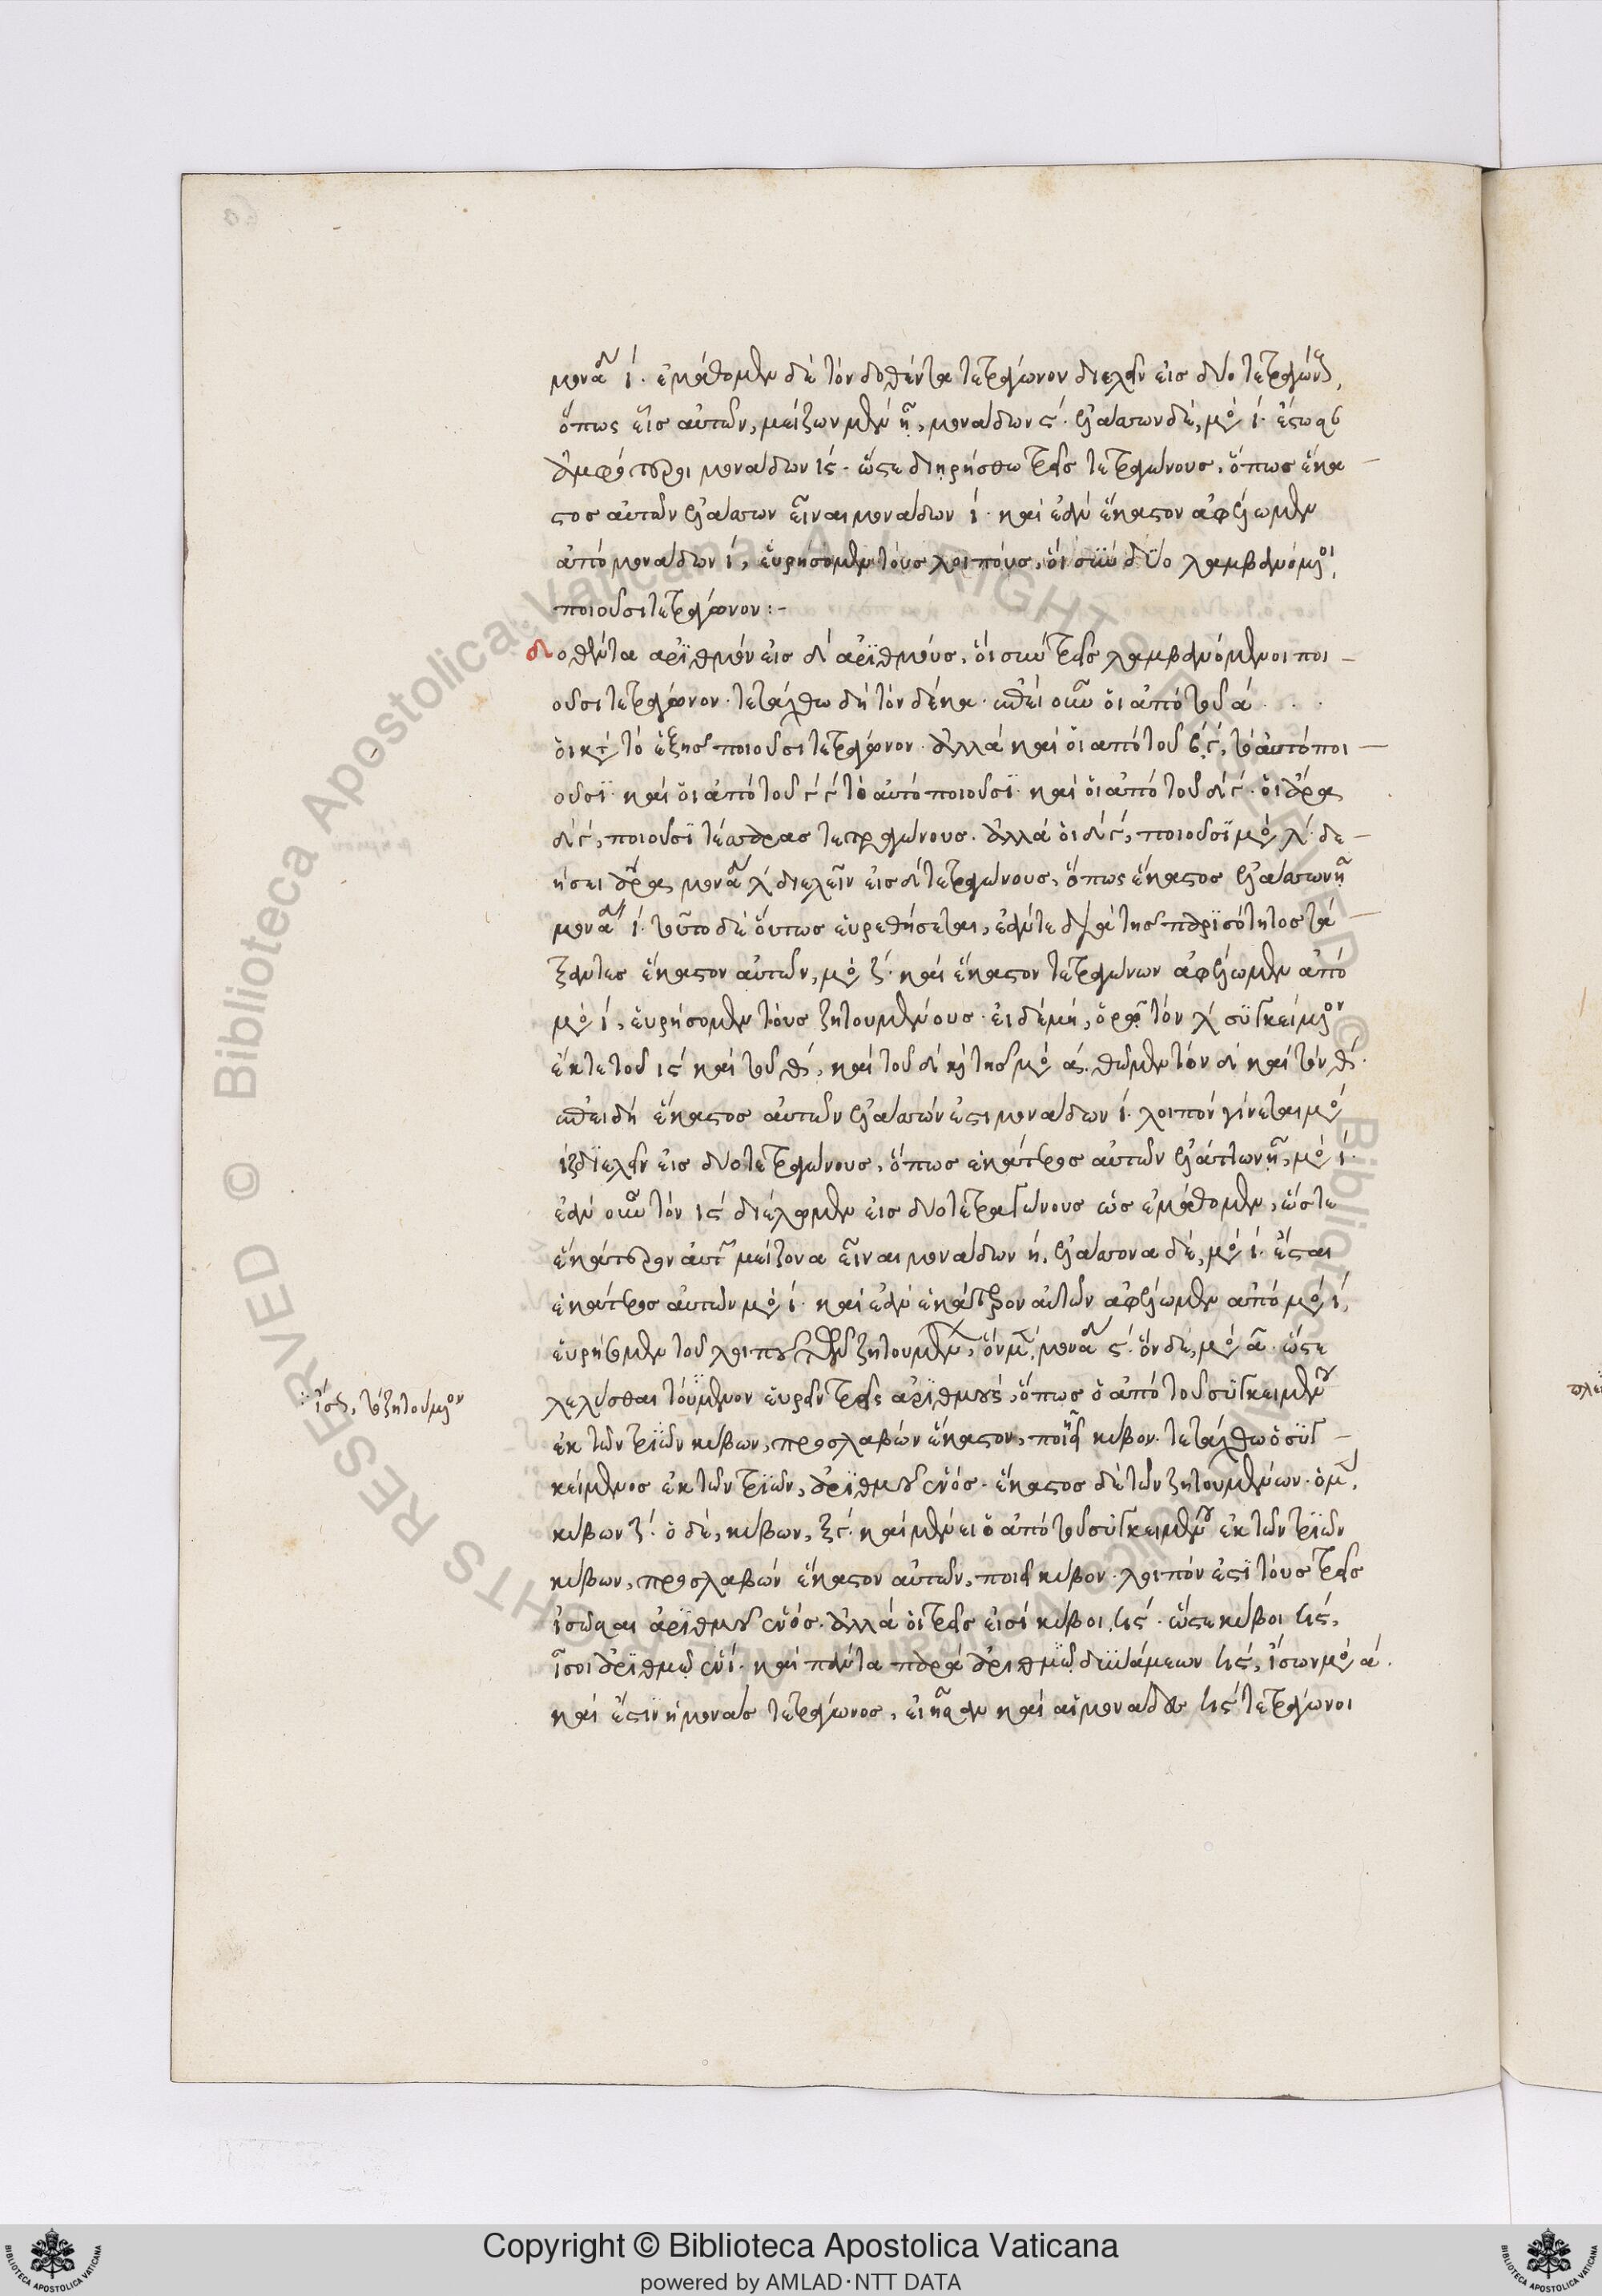 μονάδ ί. ἐμάθομεν δὲ τὸν δοθέντα τετράγωνον διελεῖν εἰσ δύο τετραγών,
ὅπως εἷσ αὐτῶν, μείζων μὲν ἦ, μονάδων ϛ. ἐλάσσων δὲ, μο ί. ἔσωσ
ἀμφότεροι μοναδων ιϛ. ὥστε διηρήσθω τρεῖσ τετραγώνουσ, ὅπωσ ἕκα
στοσ αὐτῶν ἐλάσσων εἶναι μονάδων ί. καὶ ἐὰν ἕκαστον ἀφέλωμεν
ἀπὸ μονάδων ί, εὑρήσομεν τοὺσ λοιποὺσ, οἳ σὺν δύο λαμβανόμοι,
ποιοῦσι τετράγωνον:-
Δοθέντα ἀριθμὸν εἰσ δ ἀριθμοὺσ, οἳ σὺν τρεῖσ λαμβανόμενοι ποι
οῦσι τετράγωνον. τετάχθω δὴ τὸν δέκα. ἐπεὶ οὖν οἱ ἀπὸ τοῦ ά . . .
οἱ κτ τὸ ἑξῆσ ποιοῦσι τετράγωνον. ἀλλὰ καὶ οἱ ἀπὸ τοῦ β ϛ, τὸ αὐτὸ ποι
οῦσι. καὶ οἱ ἀπὸ τοῦ ϛ ϛ τὸ αὐτὸ ποιοῦσι. καὶ οἱ ἀπὸ τοῦ δ ϛ. οἱ ἄρα
δ ϛ, ποιοῦσι τέσσαρασ τετραγώνουσ. ἀλλὰ οἱ δ ϛ, ποιοῦσι μο λ. δε
ήσει ἄρα μονάδ λ διελεῖν εἰσ δ τετραγώνουσ, ὅπωσ ἕκαστοσ ἐλάσσων ἦ
μονάδ ί. τοῦτο δὲ οὕτωσ εὑρεθήσεται, ἐάν τε διὰ τῆσ παρισότητοσ τά
ξαντεσ ἕκαστον αὐτῶν, μο ζ. καὶ ἕκαστον τετραγώνων ἀφέλωμεν ἀπὸ
μο ί, εὑρήσομεν τοὺσ ζητουμένουσ. εἰ δὲ μή, ὁρῶ τὸν λ συγκείμον
ἔκ τε τοῦ ιϛ καὶ τοῦ θ, καὶ τοῦ δ κὶ τῆσ μο ά. θῶμεν τὸν δ καὶ τὸν θ.
ἐπειδὴ ἕκαστοσ αὐτῶν ἐλάσσων ἐστι μονάδων ί. λοιπὸν γίνεται μο
ιζ διελεῖν εἰσ δύο τετραγώνουσ, ὅπωσ ἑκάτεροσ αὐτῶν ἐλάττων ἦ, μο ί.
ἐὰν οὖν τὸν ιϛ διέλωμεν εἰσ δύο τετραγώνουσ ὡσ ἐμάθομεν, ὥστε
ἑκάτερον αὐτ μείζονα εἶναι μονάδων ή, ἐλάσσονα δὲ, μο ί. ἔσται
ἑκάτεροσ αὐτῶν μο ί. καὶ ἐὰν ἑκάτερον αὐτῶν ἀφέλωμεν ἀπὸ μο ί,
εὑρήσομεν τοῦ λοιποῦ ζητουμέν, ὃν μ, μονάδ ϛ. ὃν δὲ, μο ά. ὥστε
λελύσθαι τὸ μένον εὑρεῖν τρεῖσ ἀριθμούσ, ὅπωσ ὁ ἀπὸ τοῦ συγκειμένου
ἐκ τῶν τριῶν κύβων, προσλαβὼν ἕκαστον, ποιῆ κύβον. τετάχθω ὁ συγ
κείμενοσ ἐκ τῶν τριῶν, ἀριθμοῦ ἑνόσ. ἕκαστοσ δὲ τῶν ζητουμένων. ὁ μ,
κύβων ζ. ὁ δὲ, κύβων, ξϛ. καὶ μένει ὁ ἀπὸ τοῦ συγκειμένου ἐκ τῶν τριῶν
κύβων, προσλαβὼν ἕκαστον αὐτῶν, ποιεῖ κύβον. λοιπὸν ἐστὶ τοὺσ τρεῖσ
ἰσῶσαι ἀριθμοῦ ἑνόσ. ἀλλὰ οἱ τρεῖσ εἰσὶ κύβοι ϟϛ. ὥστε κύβοι ϟϛ,
ἴσοι ἀριθμῷ ἑνί. καὶ πάντα παρὰ ἀριθμῷ. δυνάμεων ϟϛ, ἴσων μο ά.
καὶ ἔστιν ἡ μονὰσ τετράγωνοσ, εἰ ἦσαν καὶ αἱ μονάδεσ ϟϛ τετράγωνοι
ἴσον, τὸ ζητούμον
Copyright © Biblioteca Apostolica Vaticana
powered by AMLAD·NTT DATA